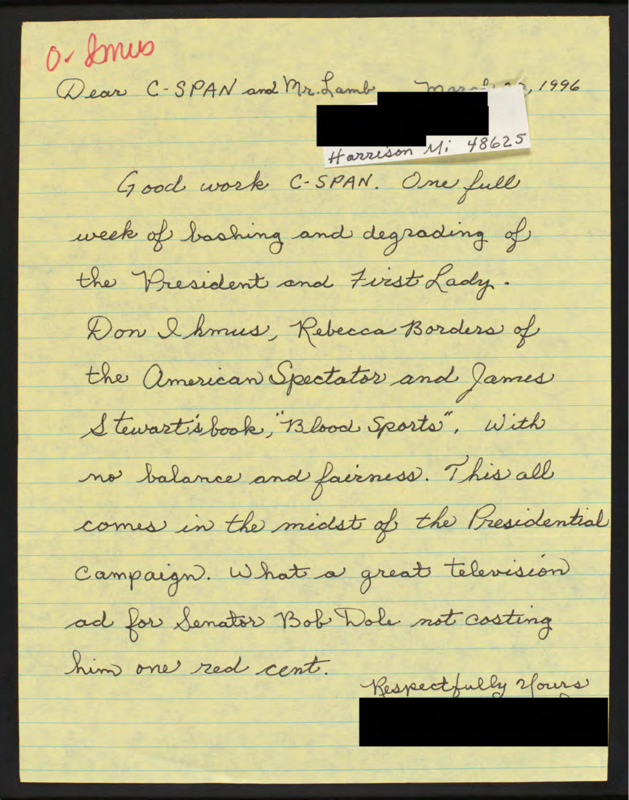 O- Imus
Dear C-SPAN and Mr. Lamb March , 1996
Harrison Mi 48625
Good work C-SPAN. One full
week of bashing and degrading of
the President and First Lady.
Don Ihmus, Rebecca Borders of
the American Spectator and James
Stewart's book, "Blood Sports". With
no balance and fairness. This all
comes in the midst of the Presidential
campaign. What a great television
ad for Senator Bob Dole not costing
him one red cent.
Respectfully Yours